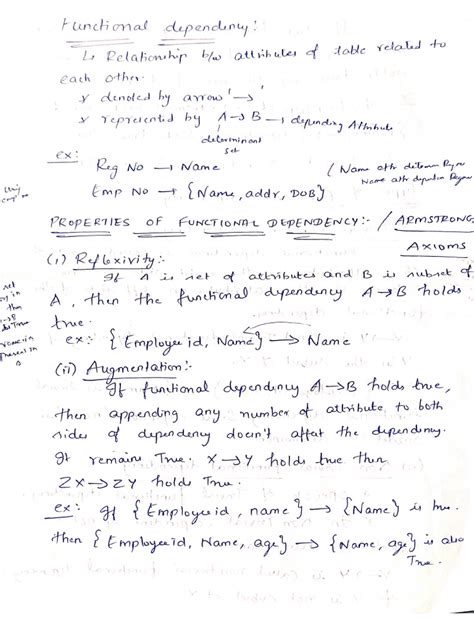 Functional dependency:
↳ Relationship b/w attributes of table related to
each other.
* denoted by arrow '→'
* represented by A → B → depending Attribute
determinant
set
ex:
Reg No → Name
Emp No → {Name, addr, DOB}
PROPERTIES OF FUNCTIONAL DEPENDENCY:- / ARMSTRONG
AXIOMS
(i) Reflexivity:-
If A is set of attributes and B is subset of
A, then the functional dependency A→B holds
true.
ex: {Employee id, Name} → Name
(ii) Augmentation:-
If functional dependency A→B holds true,
then appending any number of attribute to both
sides of dependency doesn't affat the dependency.
It remains True. X→Y holds true then
ZX→ZY holds True.
ex: If {Employeeid, name} → {Name} is true.
then {Employeeid, Name, age} → {Name, age} is also
True.